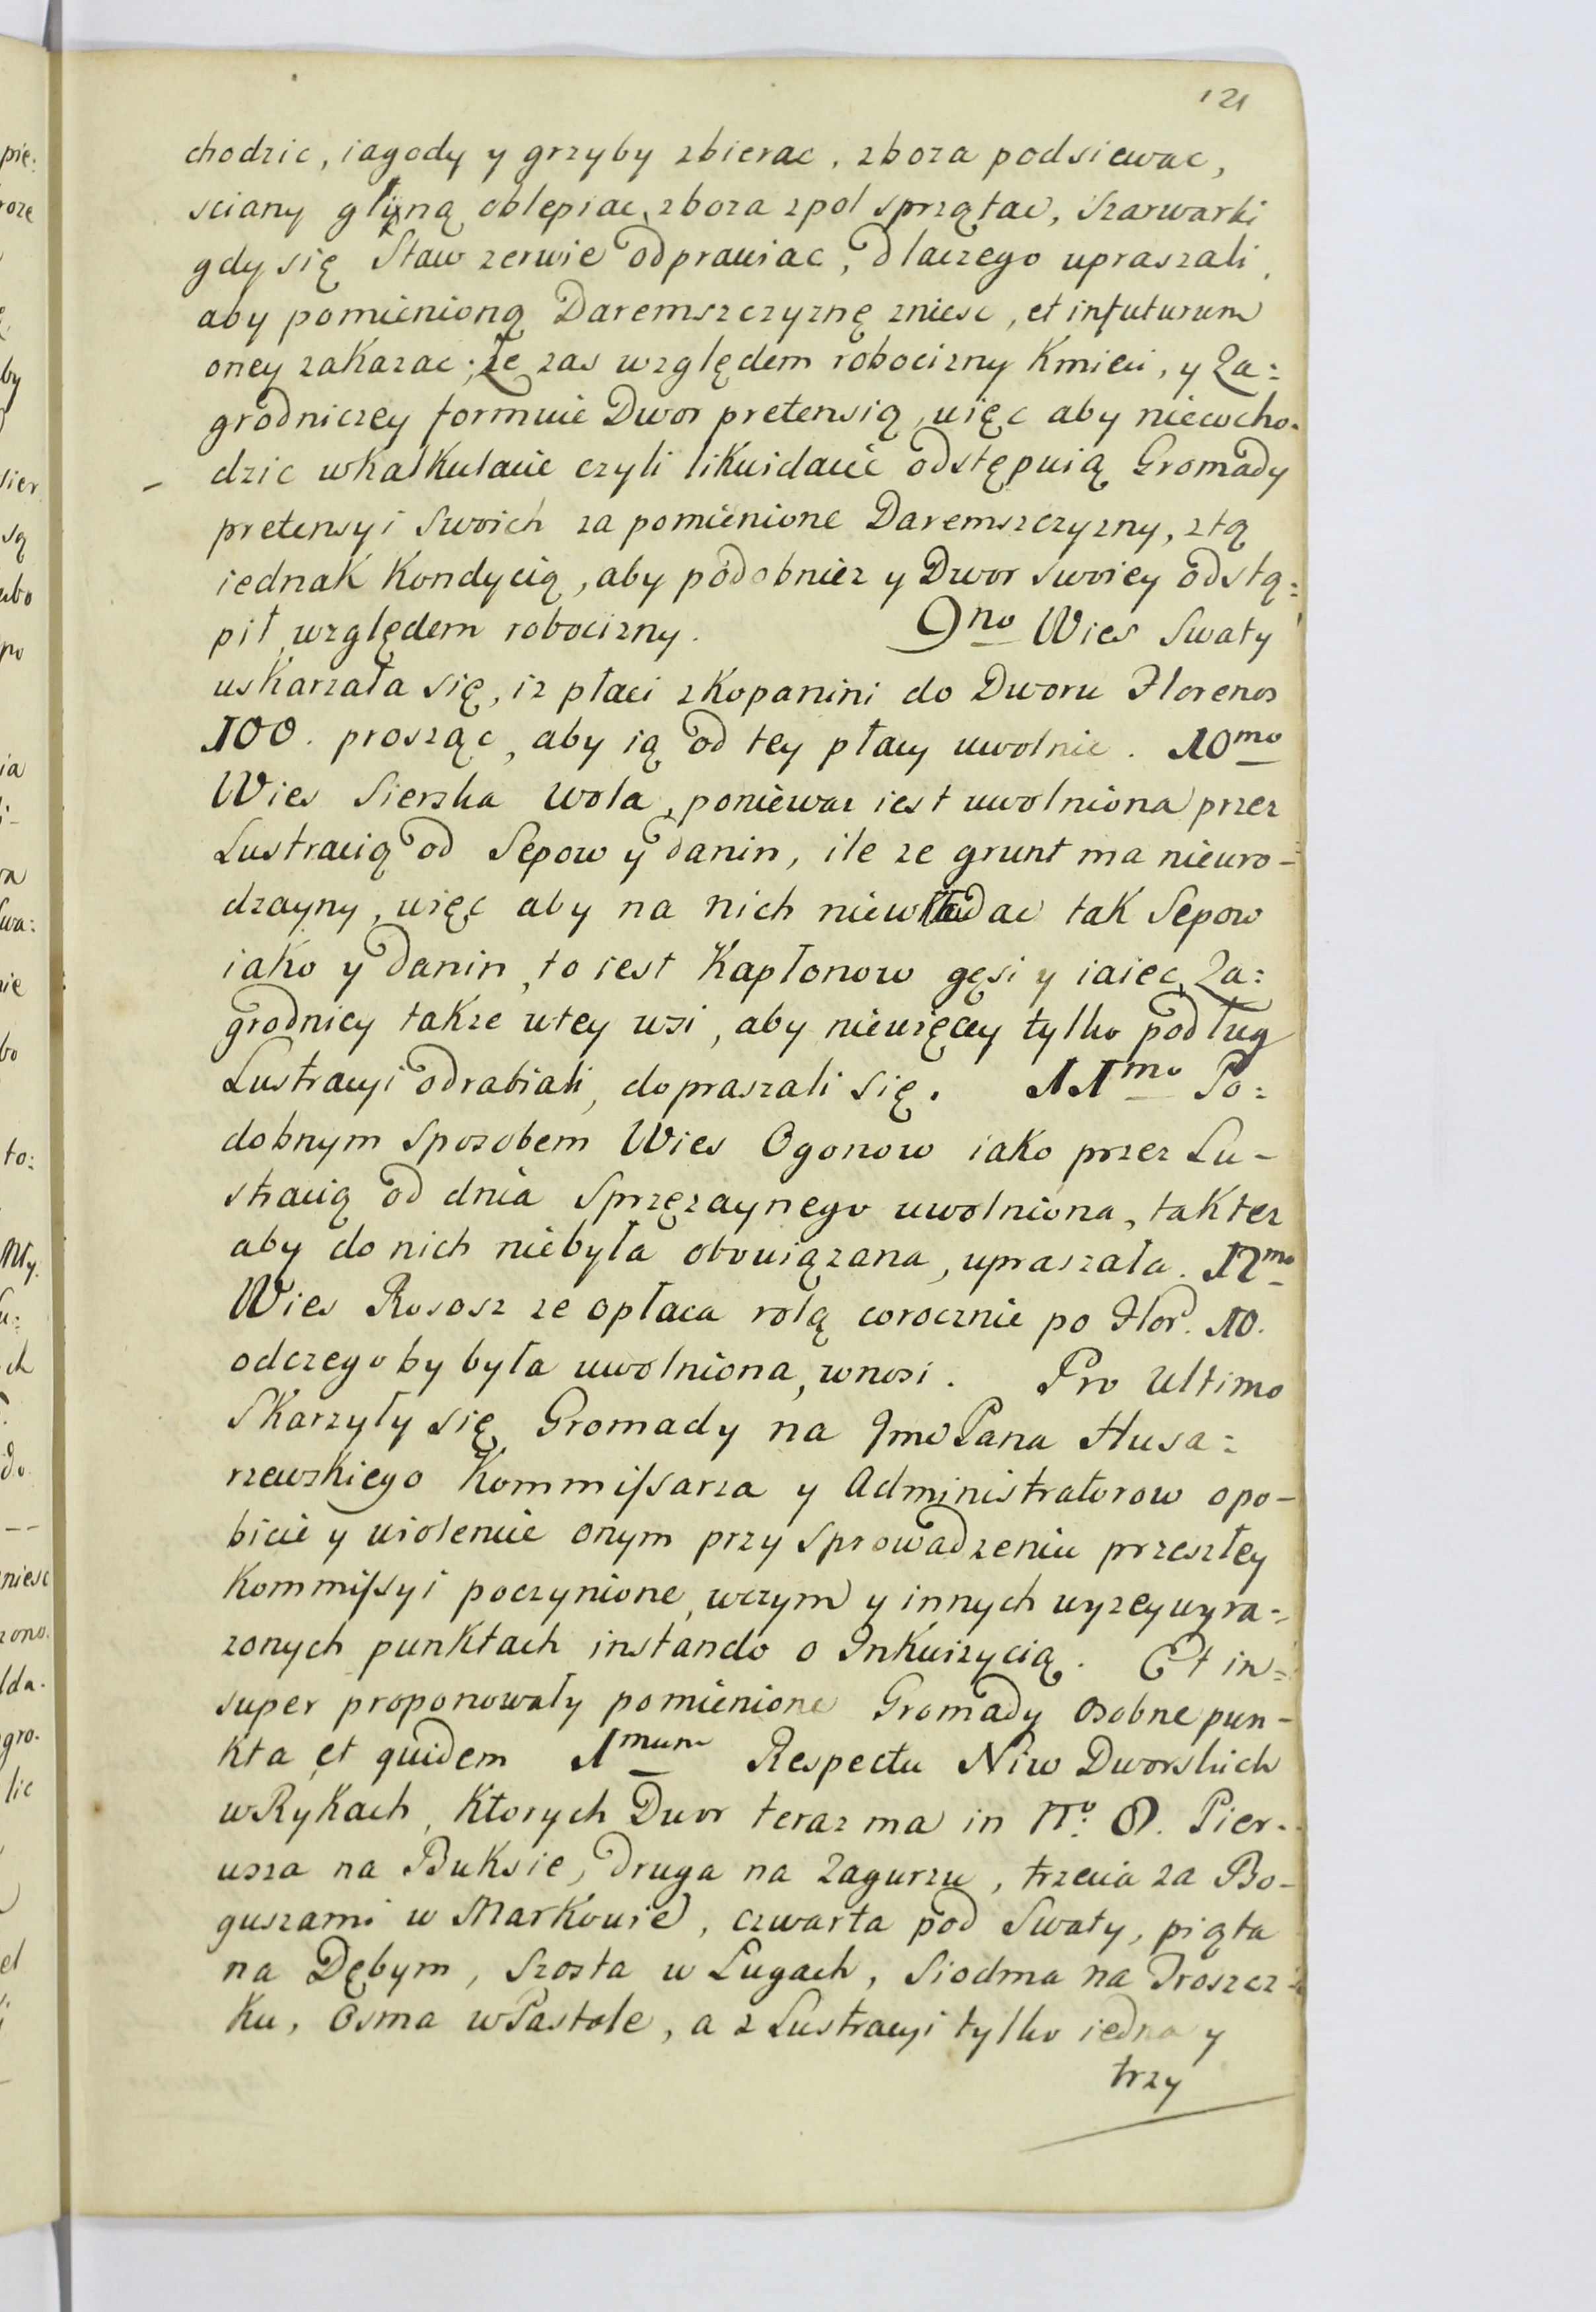 121
chodzic, iagody y grzyby zbierac, zboza podsiewac,
sciany gliną oblepiac, zboza zpol sprzątac, Szarwarki
gdy się Staw zerwie odprawiac, dlaczego upraszali,
aby pomienioną Daremszczyznę zniesc, et infuturum
oney zakazac; Ze zas względem robocizny Kmieci, y Za:
grodniczey formuie Dwor pretensią, więc aby niewcho-
dzic wkalkulacie czyli likwidacie odstępuią Gromady
pretensyi swoich za pomienione Daremszczyzny, ztą
iednak Kondycią, aby podobniez y Dwor swoiey odstą:
pił względem robocizny. 9no Wies Swaty
uskarzała się, iz płaci zKopanini do Dworu Florenos
100. prosząc, aby ią od tey płacy uwolnic. 10mo
Wies Sierska Wola, poniewaz iest uwolniona przez
Lustracią od Sepow y danin, ile ze grunt ma nieuro-
dzayny, więc aby na nich niewkładac tak Sepow
iako y danin, to iest Kapłonow gęsi y iaiec, Za:
grodnicy takze wtey wsi, aby niewięcey tylko podług
Lustracyi odrabiali, dopraszali się. 11mo Po:
dobnym sposobem Wies Ogonow iako przez Lu-
stracią od dnia Sprzęzaynego uwolniona, taktez
aby do nich niebyła obowiązana, upraszała. 12mo
Wies Rososz ze opłaca rolą corocznie po Flor. 10.
odczego by była uwolniona, wnosi. Pro Ultimo
Skarzyły się Gromady na Jmo Pana Husa:
rzewskiego Kommissarza y Administratorow opo-
bicie y wiolencie onym przy sprowadzeniu przeszłey
Kommissyi poczynione, wczym y innych wyzeywyra-
zonych punktach instando o Inkwizycią. Et in=
super proponowały pomienione Gromady osobne pun-
kta et quidem 1mum Respectu Niw Dworskich
wRykach, Ktorych Dwor teraz ma in No. 8. Pier-
wsza na Buksie, druga na Zagurzu, trzecia za Bo-
guszami w Markowie, czwarta pod Swaty, piąta
na Dębym, szosta w Ługach, Siodma na Troszcz-
ku, osma wPastole, a z Lustracyi tylko iedna y
trzy